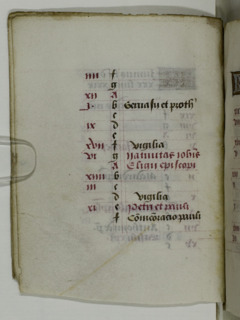 iiii f
g
xii A
i b Geruasii et proth'
c
ix d
e
xvii f vigilia
vi g Natiuitas iohis
A Eligii episcopi
xiiii b
iii c
d vigilia
xi e Petri et pauli
f Comeoratio pauli